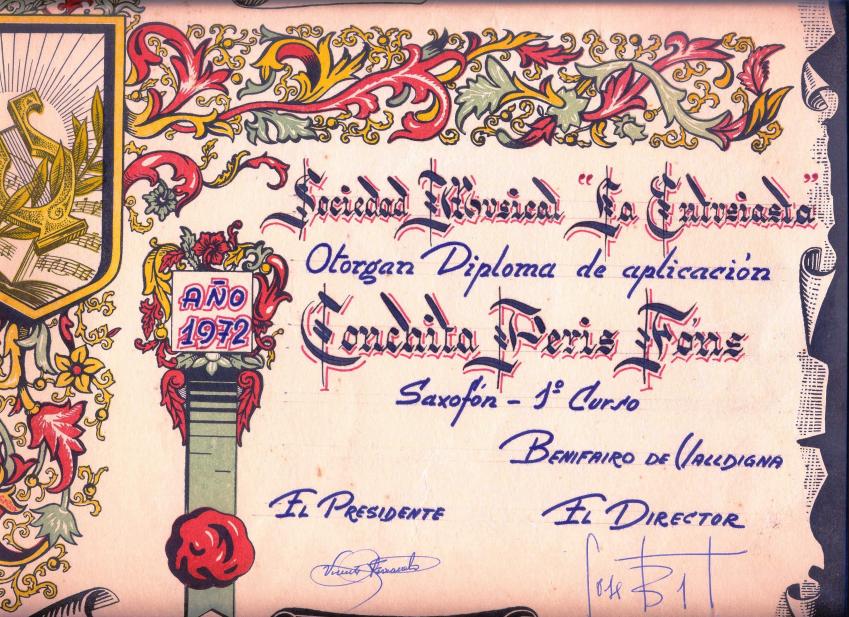 Sociedad Musical "La Entusiasta"
Otorgan Diploma de aplicación
AÑO
1972
Conchita Peris Fóns
Saxofón - 1º Curso
BENIFAIRO DE VALLDIGNA
EL PRESIDENTE
EL DIRECTOR
Vicente
José